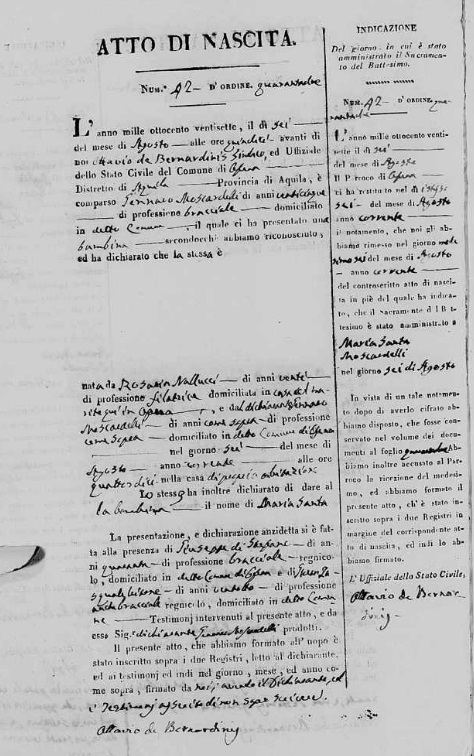 ATTO DI NASCITA.
Num.° 42 — D'ORDINE quarantadue
L'anno mille ottocento ventisette, il dì sei
del mese di Agosto — alle ore quindici avanti di
noi Ottavio de Bernardinis Sindaco, ed Uffiziale
dello Stato Civile del Comune di
Distretto di Aquila — Provincia di Aquila, è
comparso Gennaro Moscardelli di anni venticinque
— di professione bracciale — domiciliato
in detto Comune —, il quale ci ha presentato una
bambina — secondochè abbiamo riconosciuto,
ed ha dichiarato che la stessa è
nata da Rosaria Nallucci — di anni venti
di professione filatrice domiciliata in casa del ma-
rito qui in — e dal dichiarante Gennaro
Moscardelli — di anni come sopra — di professione
come sopra — domiciliato in detto Comune di
nel giorno sei — del mese di
Agosto — anno corrente — alle ore
quattordici nella casa di propria abitazione
Lo stesso ha inoltre dichiarato di dare al
la bambina — il nome di Maria Santa
La presentazione, e dichiarazione anzidetta si è fat-
ta alla presenza di Giuseppe di Stefano — di an-
ni quaranta — di professione bracciale — regnico-
lo, domiciliato in detto Comune di e di
di anni — di professione
anche bracciale regnicolo, domiciliato in detto Comu-
ne — Testimonj intervenuti al presente atto, e da
esso Sig.r dichiarante Gennaro Moscardelli prodotti.
Il presente atto, che abbiamo formato all'uopo è
stato inscritto sopra i due Registri, letto al dichiarante,
ed ai testimonj ed indi nel giorno, mese, ed anno co-
me sopra, firmato da noi, avendo il Dichiarante, ed
i Testimonj asserito di non saper scrivere.
Ottavio de Bernardinis
INDICAZIONE
Del giorno in cui è stato
amministrato il Sacramen-
to del Battesimo.
Num. 42 — D'ORDINE qua-
rantadue
L'anno mille ottocento venti-
sette il dì sei
del mese di Agosto
Il Parroco di
ci ha restituito nel dì stesso
sei — del mese di Agosto
anno corrente —
il notamento, che noi gli ab-
biamo rimesso nel giorno mede-
simo sei del mese di Agosto
— anno corrente —
del controscritto atto di nasci-
ta in piè del quale ha indica-
to, che il Sacramento di Bat-
tesimo è stato amministrato a
Maria Santa
Moscardelli
nel giorno sei di Agosto
In vista di un tale notamento
dopo di averlo cifrato abbiamo
disposto, che fosse con-
servato nel volume dei docu-
menti al foglio quarantadue Ab-
biamo inoltre accusato al Par-
roco la ricezione del medesi-
mo, ed abbiamo formato il
presente atto, ch'è stato in-
scritto sopra i due Registri in
margine del corrispondente at-
to di nascita, ed indi lo ab-
biamo firmato.
L'Uffiziale dello Stato Civile,
Ottavio de Bernar-
dinis